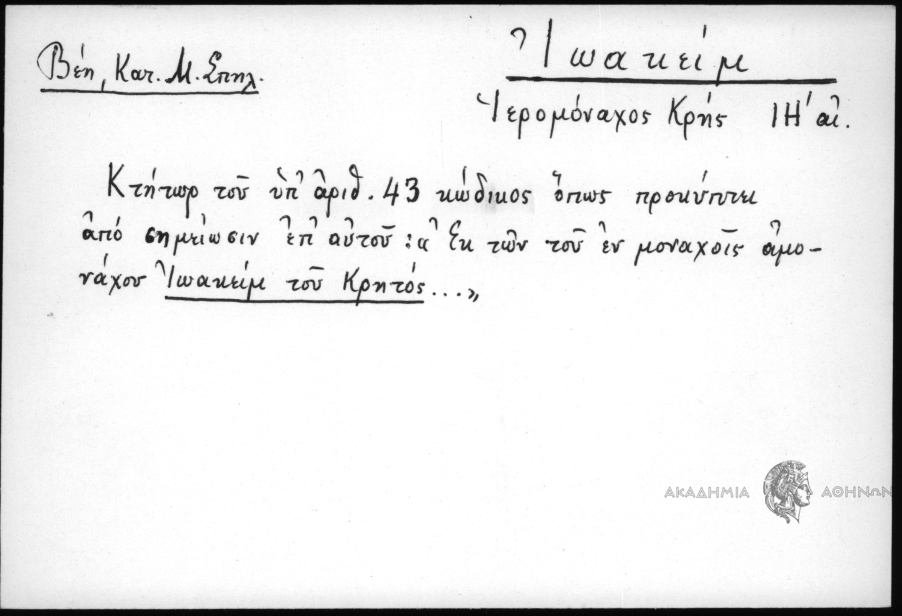 Βέη, Κατ. Μ. Σπηλ.
Ἰωακείμ
Ἱερομόναχος Κρής ΙΗ' αἰ.
Κτήτωρ τοῦ ὑπ' ἀριθ. 43 κώδικος ὅπως προκύπτει
ἀπό σημείωσιν ἐπ' αὐτοῦ: «Ἐκ τῶν τοῦ ἐν μοναχοῖς ἀμο-
νάχου Ἰωακείμ τοῦ Κρητός...»
ΑΚΑΔΗΜΙΑ ΑΘΗΝΩΝ